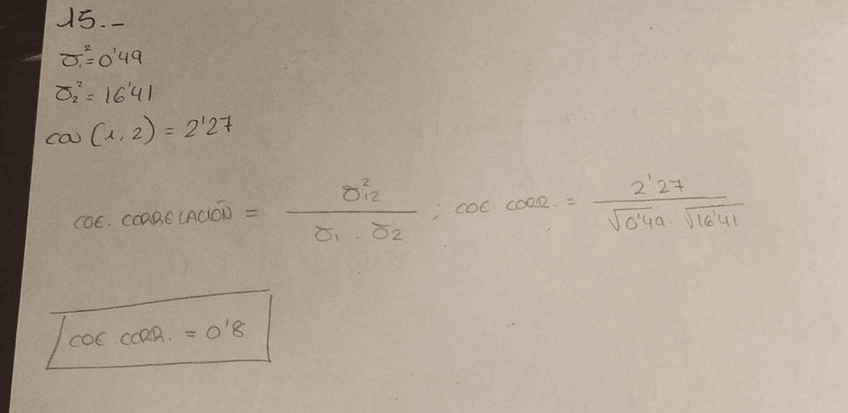 15.-
σ₁² = 0'49
σ₂² = 16'41
cov (1,2) = 2'27
COE. CORRELACIÓN = σ₁₂² / σ₁ · σ₂ ; COE CORR. = 2'27 / √0'49 · √16'41
COE CORR. = 0'8